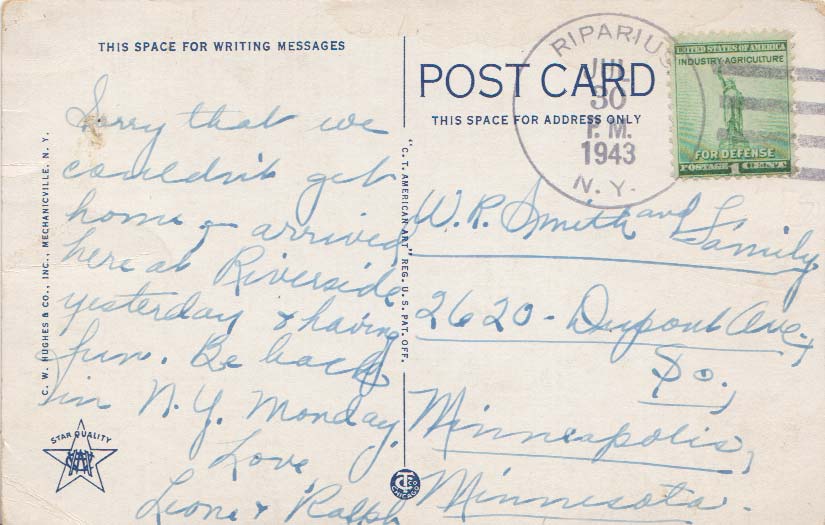 THIS SPACE FOR WRITING MESSAGES
Sorry that we
couldn't get
home - arrived
here at Riverside
yesterday & having
fun. Be back
in N.Y. Monday.
Love,
Leone & Ralph
C. W. HUGHES & CO., INC., MECHANICVILLE, N. Y.
STAR QUALITY
"C. T. AMERICAN ART" REG. U. S. PAT. OFF.
CHICAGO
POST CARD
THIS SPACE FOR ADDRESS ONLY
RIPARIUS
JUL
30
P.M.
1943
N.Y.
UNITED STATES OF AMERICA
INDUSTRY-AGRICULTURE
FOR DEFENSE
POSTAGE 1 CENT
W. R. Smith and Family
2620 - Dupont Ave.,
So.,
Minneapolis,
Minnesota.